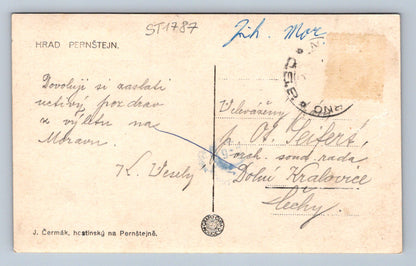 ST1787
Jih. Mor.
HRAD PERNŠTEJN.
Dovoluji si zaslati
uctivý pozdrav
z výletu na
Moravu.
K. Veselý
BRNO
Velevážený
p. Ot. Seifert,
vrch. soud. rada
Dolní Kralovice
Čechy.
J. Čermák, hostinský na Pernštejně.